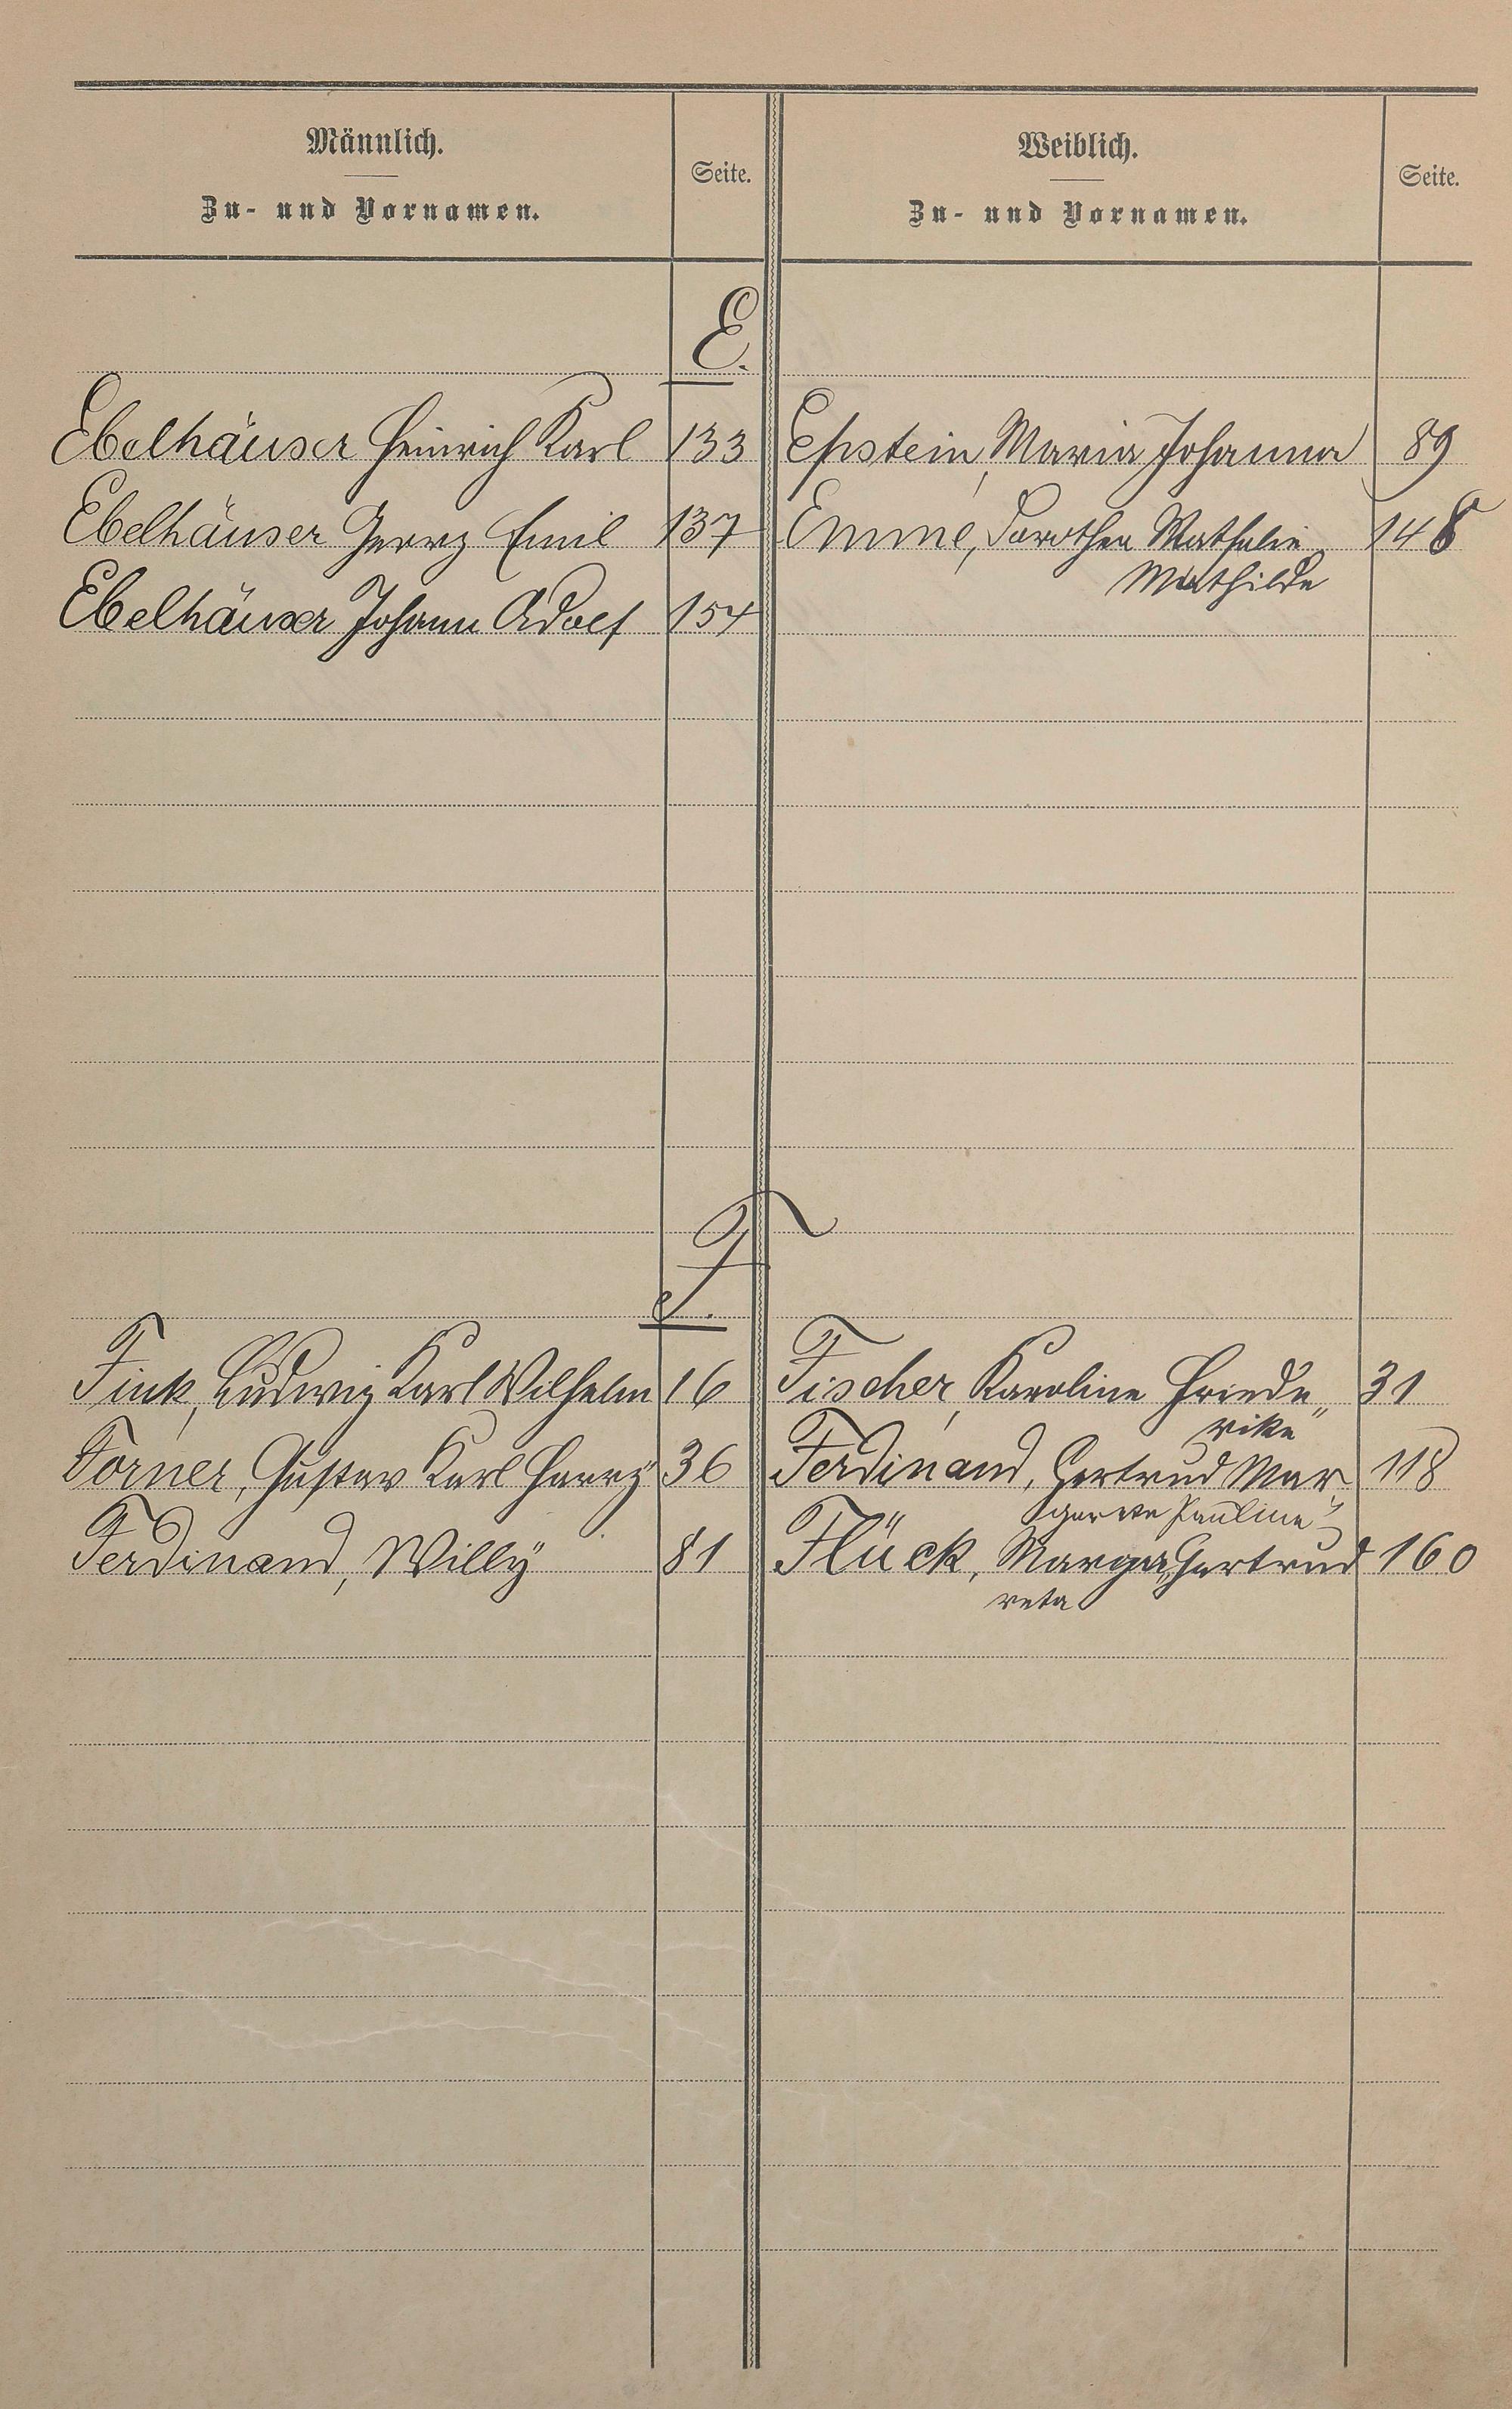 Männlich.
Zu- und Vornamen.
Seite.
Weiblich.
Zu- und Vornamen.
Seite.
E.
Ebelhäuser Heinrich Karl 133
Epstein, Maria Johanna 89
Ebelhäuser Georg Emil 137
Emme, Dorothea Mathalie 148
Mathilde
Ebelhäuser Johann Adolf 154
F.
Fink, Ludwig Karl Wilhelm 16
Fischer, Karoline Friede„ 31
rike"
Forner, Gustav Karl Harry 36
Ferdinand, Gertrud Mar 118
garete Pauline
Ferdinand, Willÿ 81
Flück, Marga„ Gertrud 160
reta